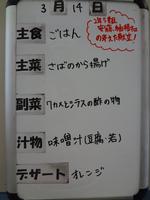 3月14日
2年5組
の考えた献立!
主食 ごはん
主菜 さばのから揚げ
副菜 ワカメとシラスの酢の物
汁物 味噌汁(豆腐・若)
デザート オレンジ